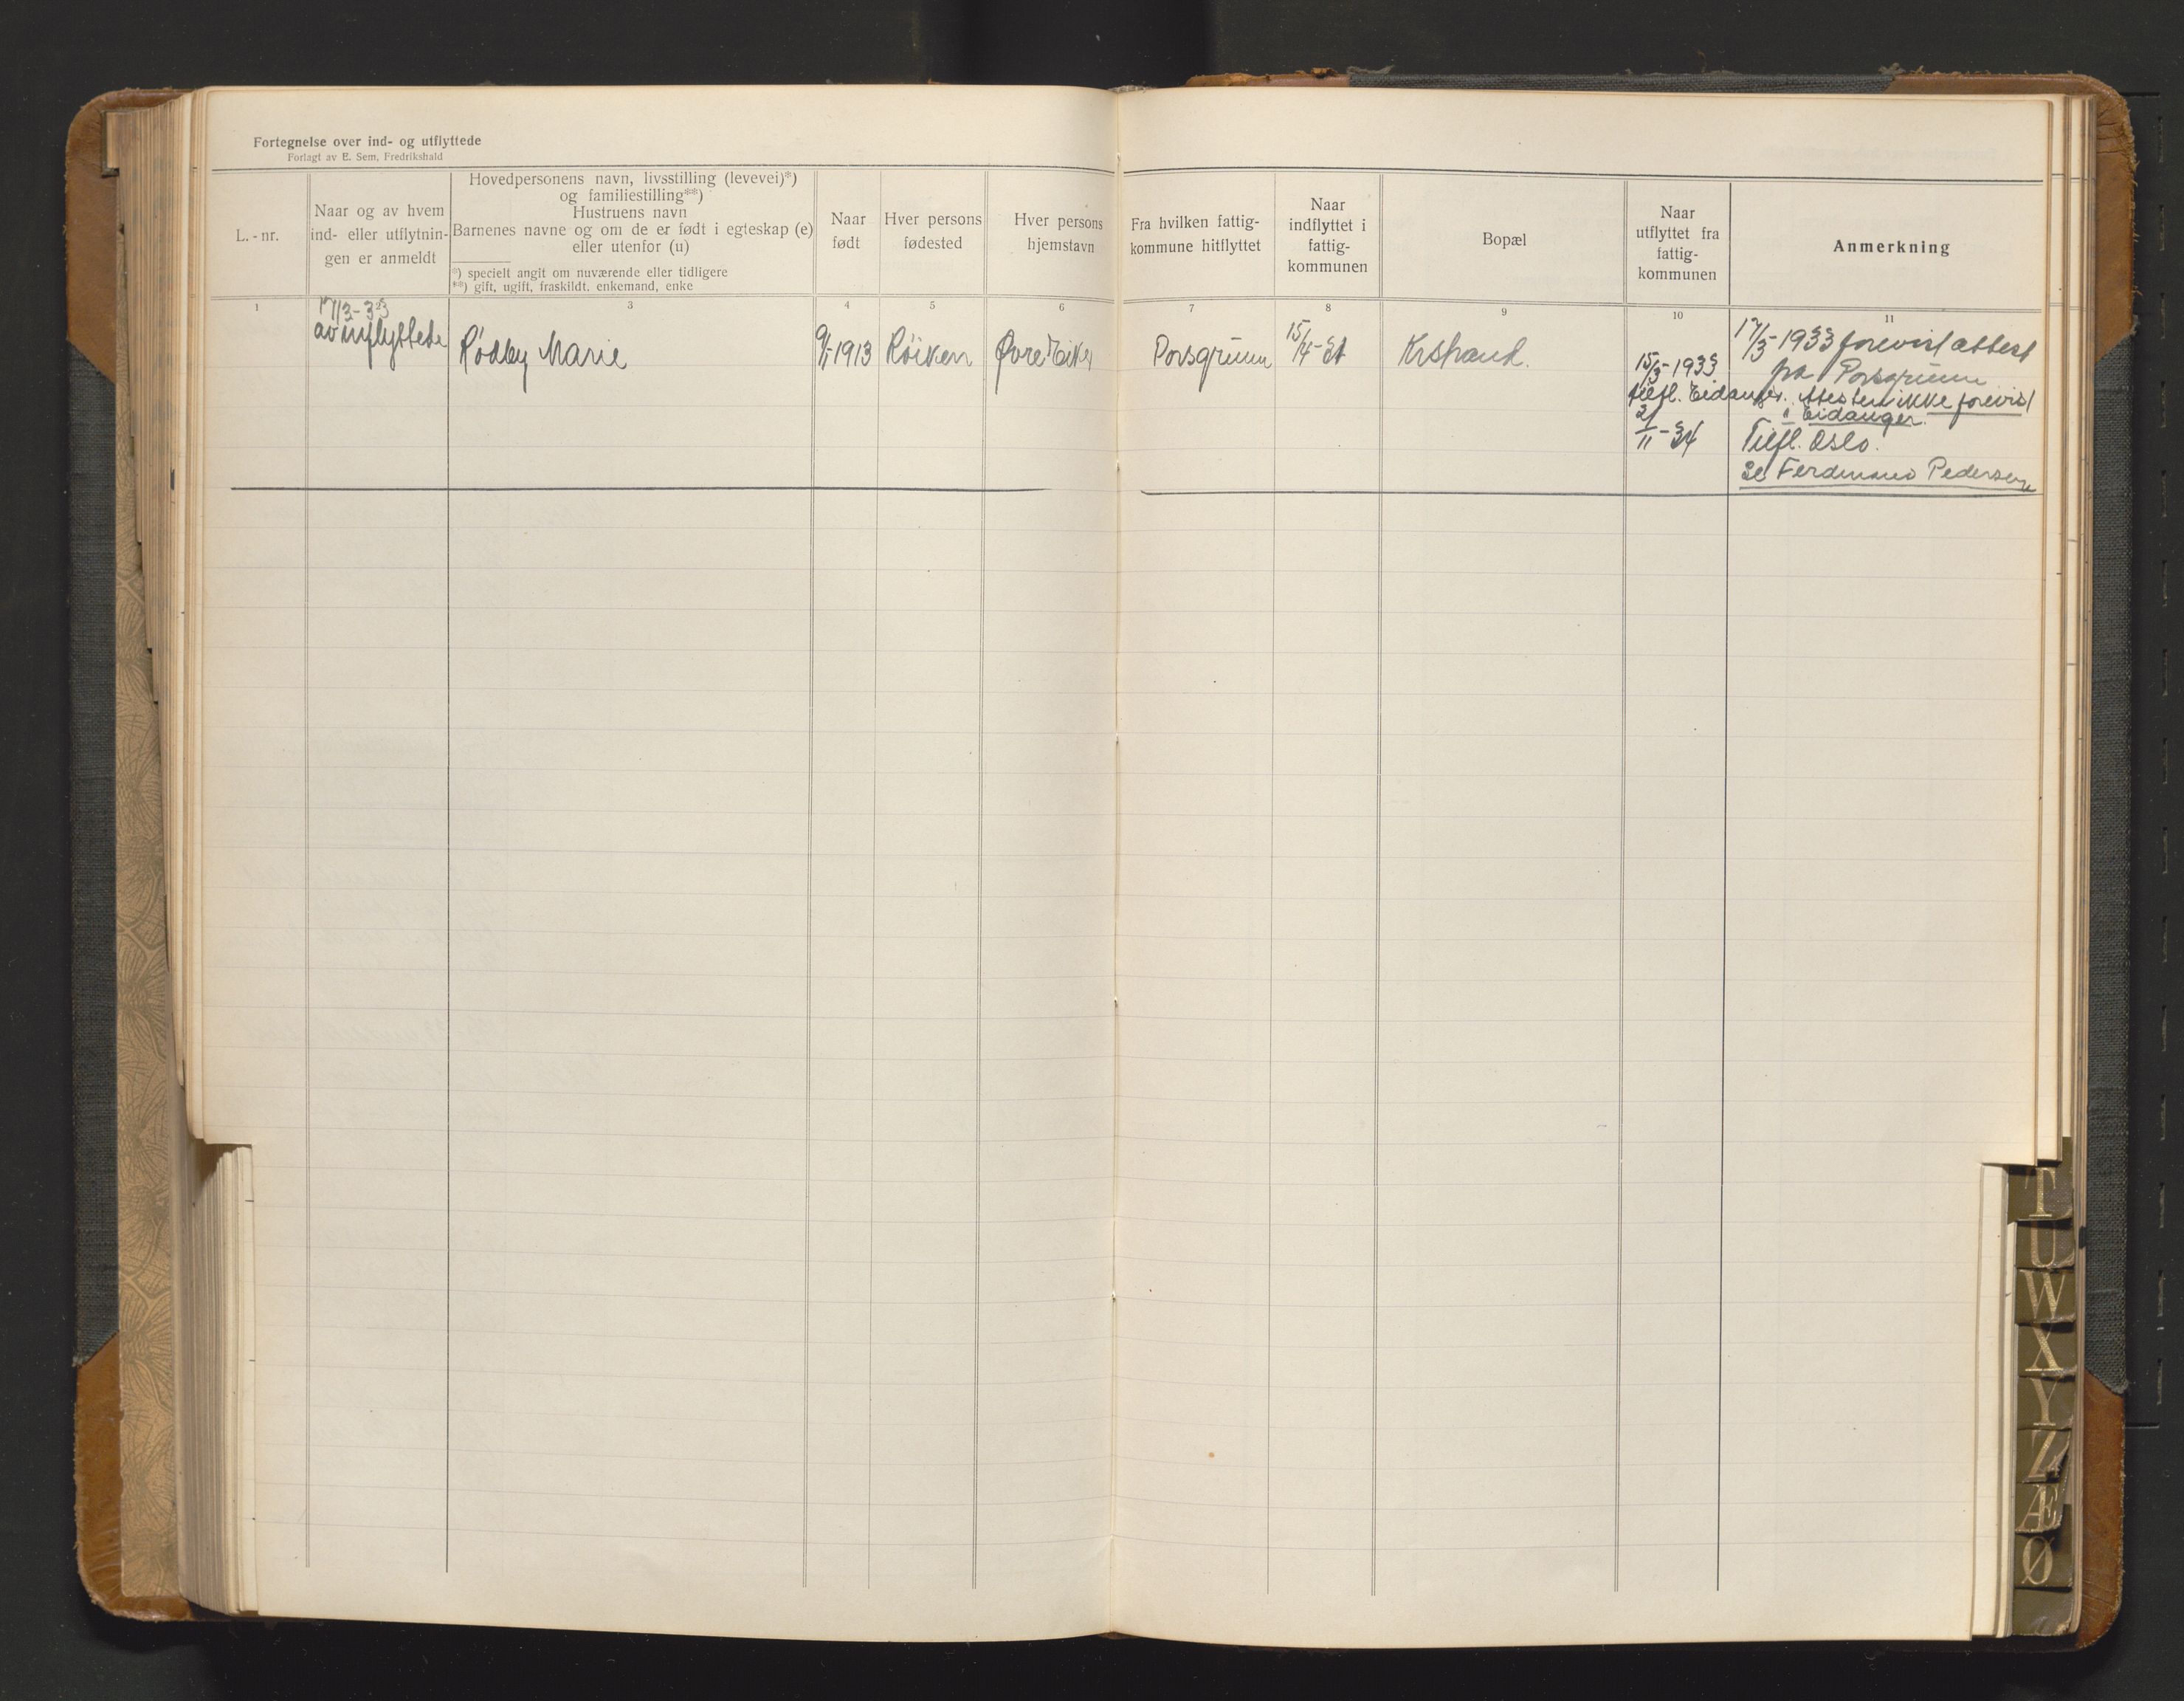 Fortegnelse over ind- og utflyttede
Forlagt av E. Sem, Fredrikshald
L.-nr.
Naar og av hvem
ind- eller utflytnin-
gen er anmeldt
Hovedpersonens navn, livsstilling (levevei)*)
og familiestilling**)
Hustruens navn
Barnenes navne og om de er født i egteskap (e)
eller utenfor (u)
*) specielt angit om nuværende eller tidligere
**) gift, ugift, fraskildt, enkemand, enke
Naar
født
Hver persons
fødested
Hver persons
hjemstavn
Fra hvilken fattig-
kommune hitflyttet
Naar
indflyttet i
fattig-
kommunen
Bopæl
Naar
utflyttet fra
fattig-
kommunen
Anmerkning
1
3
4
5
6
7
8
9
10
11
17/3-33
av innflyttede
Rødby Marie
9/1-1913
Røiken
Øvre Eiker
Porsgrunn
15/4-
Krstrand.
15/3-1933
tilfl. Eidanger.
2/11-34
17/3-1933 forevist attest
fra Porsgrunn
Attesten ikke forevist
i Eidanger.
Tilfl. Oslo.
Se Ferdinand Pedersen
T
U
W
X
Y
Z
Æ
Ø